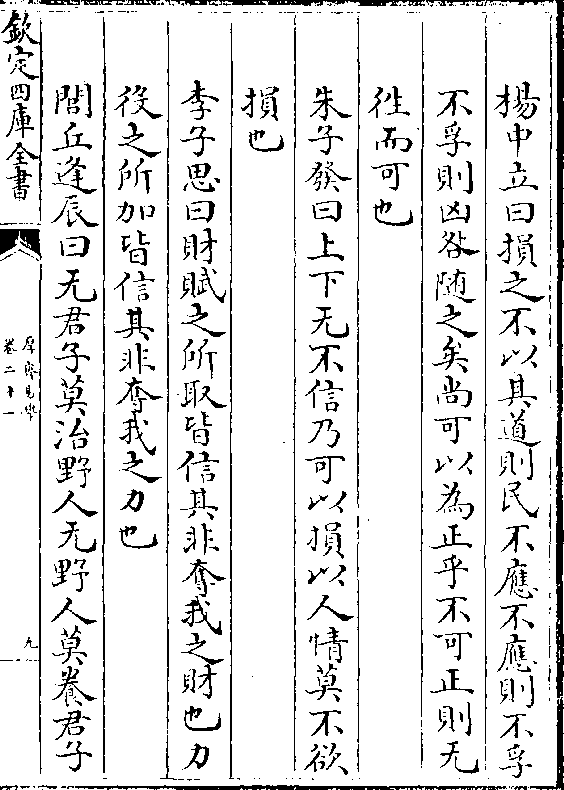 楊中立曰損之不以其道則民不應不應則不孚
不孚則凶咎随之矣尚可以為正乎不可正則无
徃而可也
朱子發曰上下无不信乃可以損以人情莫不欲
損也
李子思曰財賦之所取皆信其非奪我之財也力
役之所加皆信其非奪我之力也
閭丘逢辰曰无君子莫治野人无野人莫養君子
欽定四庫全書
厚齋易學
卷二十一
九